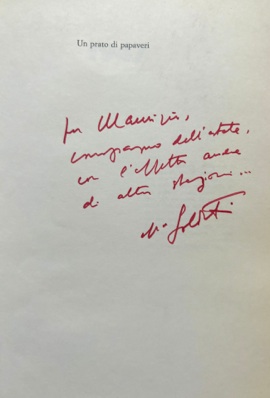 Un prato di papaveri
per Maurizio,
dell'estate,
con l'affetto anche
di altre stagioni...